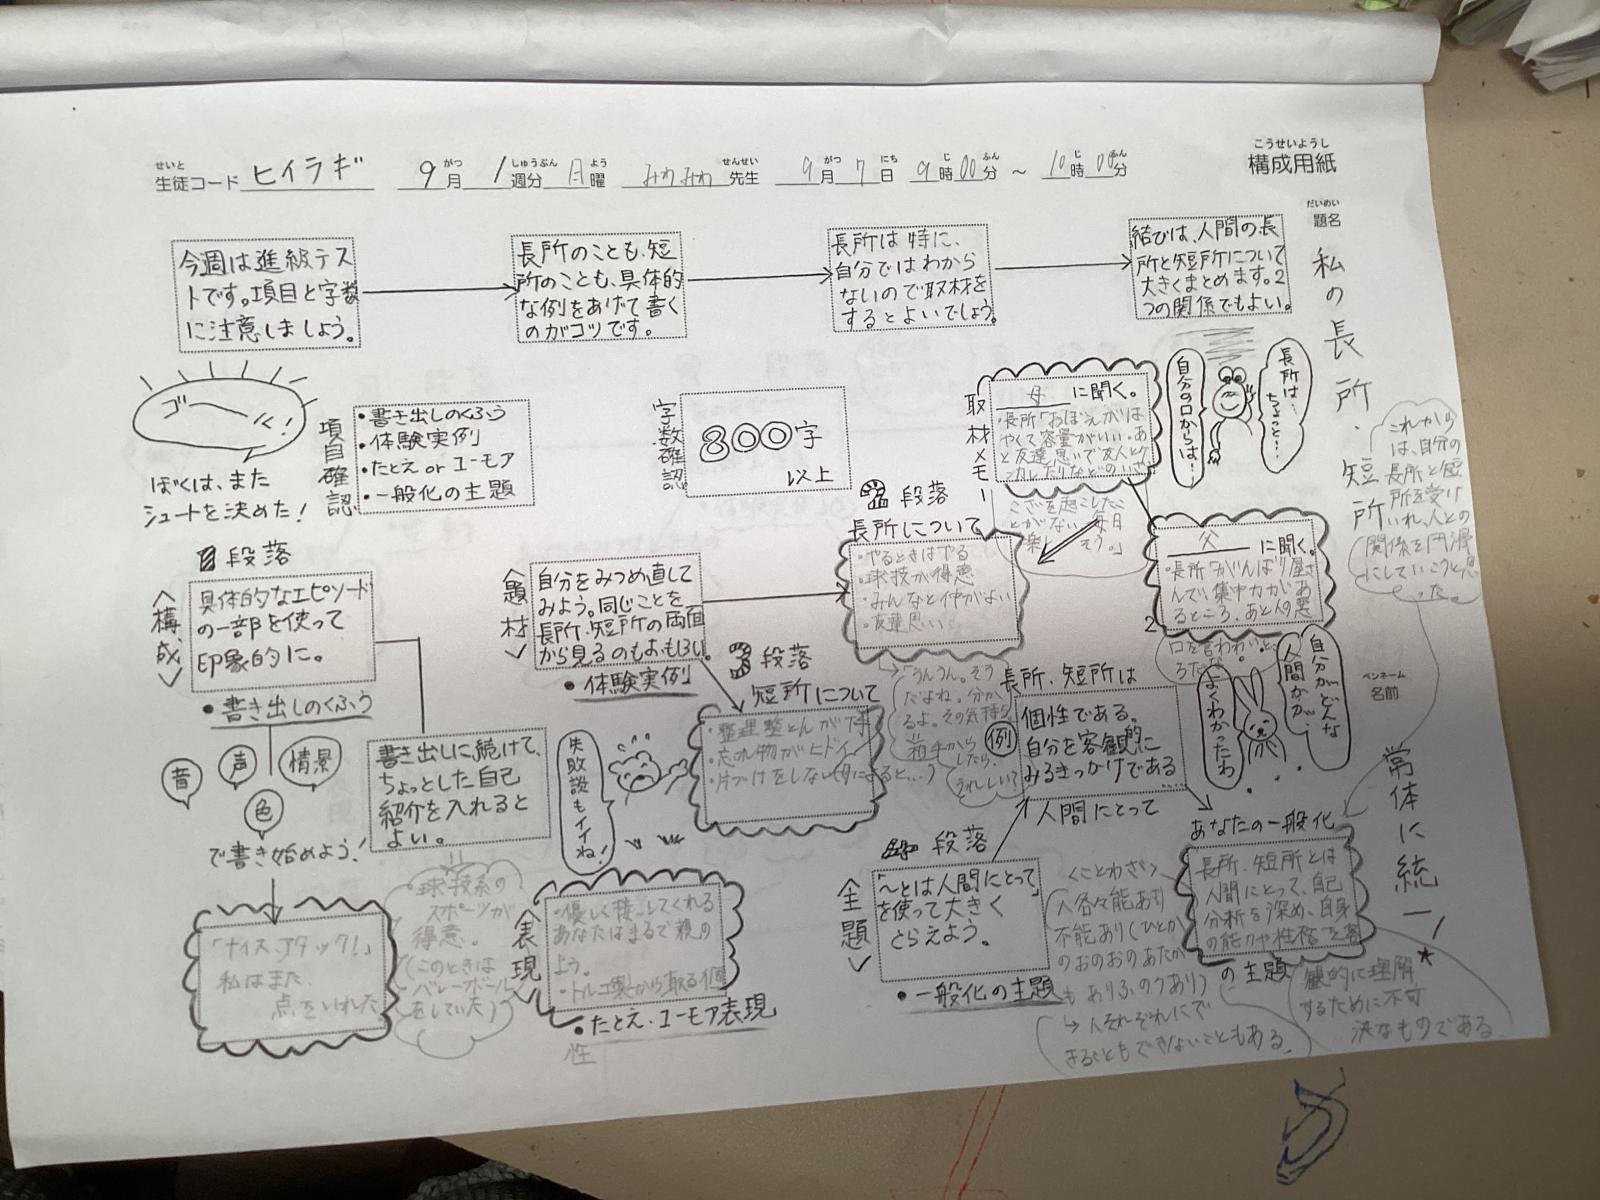 せいと
生徒コード ヒイラギ 9月 1週分 月曜 みわみわ 先生 9月7日 9時00分 ～ 10時00分
がつ しゅうぶん よう せんせい がつ にち じ ふん じ ふん
こうせいようし
構成用紙
だいめい
題名
私の長所・短所
今週は進級テス
トです。項目と字数
に注意しましょう。
長所のことも、短
所のことも、具体的
な例をあげて書く
のがコツです。
長所は特に、
自分ではわから
ないので取材を
するとよいでしょう。
結びは、人間の長
所と短所について
大きくまとめます。2
つの関係でもよい。
ゴーール!
ぼくは、また
シュートを決めた!
項目確認
・書き出しのくふう
・体験実例
・たとえ or ユーモア
・一般化の主題
字数確認
800字
以上
取材メモ
母 に聞く。
・長所「おぼえがは
やくて容量がいい。あ
と友達思いで友人とケ
ンカしたりなどのいざ
こざを起こしたこ
とがない。毎日
楽しそう。」
自分の口からは…
長所は…
ちょっと…
父 に聞く。
・長所「がんばり屋さ
んで、集中力があ
るところ、あと人の悪
口を言わないとこ
ろだな。」
これから
は、自分の
長所と短
所を受け
いれ、人との
関係を円滑
にしていこうと思
った。
自分がどんな
人間かが…
よくわかったわ
ペンネーム
名前
常体に統一!★
1段落
<構成>
具体的なエピソード
の一部を使って
印象的に。
・書き出しのくふう
音 声 情景
色
で書き始めよう!
「ナイスアタック!」
私はまた
点をいれた。
書き出しに続けて、
ちょっとした自己
紹介を入れると
よい。
球技系の
スポーツが
得意。
(このときは
バレーボール
をしていた)
<題材>
自分をみつめ直して
みよう。同じことを
長所・短所の両面
から見るのもおもしろい。
・体験実例
2段落
長所について
・やるときはやる
・球技が得意
・みんなと仲がよい
・友達思い
3段落
短所について
・整理整とんが下手
・忘れ物がヒドイ
・片づけをしない(母によると…)
失敗談もイイね!
「うんうん。そう
だよね。分か
るよ。その気持ち。」
相手から
したら、
うれしい!
<表現>
・優しく接してくれる
あなたはまるで親の
よう。
・トルコ製から取る個
性
・たとえ・ユーモア表現
4段落
<主題>
「～とは人間にとって」
を使って大きく
とらえよう。
・一般化の主題
長所、短所は
例
個性である。
自分を客観的に
みるきっかけである
人間にとって
<ことわざ>
人各々能あり
不能あり(ひとか
のおのおのあたわ
もありふのうあり)
→人それぞれにで
きることもできないこともある。
あなたの一般化
の主題
長所、短所とは
人間にとって、自己
分析を深め、自身
の能力や性格を客
観的に理解
するために不可
決なものである。